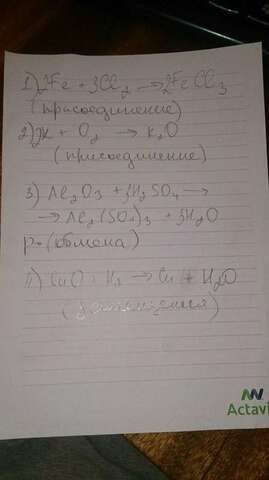 1) 2Fe + 3Cl2 → 2FeCl3
(присоединение)
2) 2K + O2 → K2O
(присоединение)
3) Al2O3 + 3H2SO4 →
→ Al2(SO4)3 + 3H2O
р- (обмена)
CuO + H2 → Cu + H2O
(замещения)
Actavi